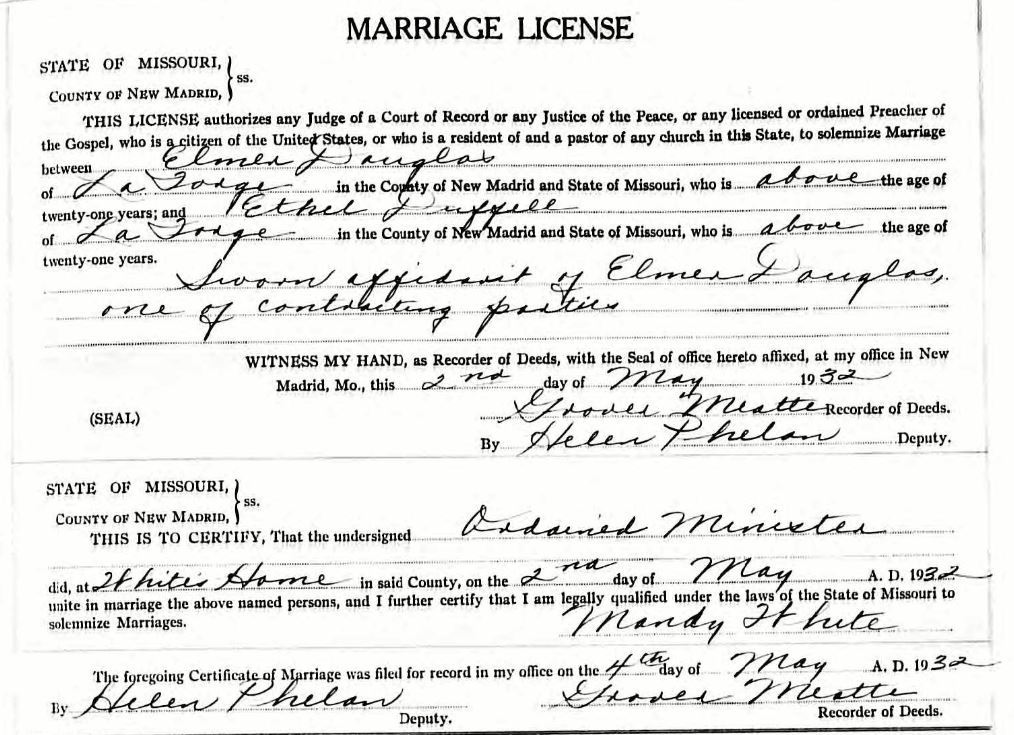 MARRIAGE LICENSE
STATE OF MISSOURI, } ss.
COUNTY OF NEW MADRID,
THIS LICENSE authorizes any Judge of a Court of Record or any Justice of the Peace, or any licensed or ordained Preacher of
the Gospel, who is a citizen of the United States, or who is a resident of and a pastor of any church in this State, to solemnize Marriage
between Elmer Douglas
of La Forge in the County of New Madrid and State of Missouri, who is above the age of
twenty-one years; and Ethel Duffell
of La Forge in the County of New Madrid and State of Missouri, who is above the age of
twenty-one years.
Sworn affidavit of Elmer Douglas,
one of contracting parties
WITNESS MY HAND, as Recorder of Deeds, with the Seal of office hereto affixed, at my office in New
Madrid, Mo., this 2nd day of May 1932
(SEAL) Grover Meatte Recorder of Deeds.
By Helen Phelan Deputy.
STATE OF MISSOURI, } ss.
COUNTY OF NEW MADRID,
THIS IS TO CERTIFY, That the undersigned Ordained Minister
did, at White's Home in said County, on the 2nd day of May A. D. 1932
unite in marriage the above named persons, and I further certify that I am legally qualified under the laws of the State of Missouri to
solemnize Marriages. Mandy White
The foregoing Certificate of Marriage was filed for record in my office on the 4th day of May A. D. 1932
By Helen Phelan Deputy. Grover Meatte Recorder of Deeds.